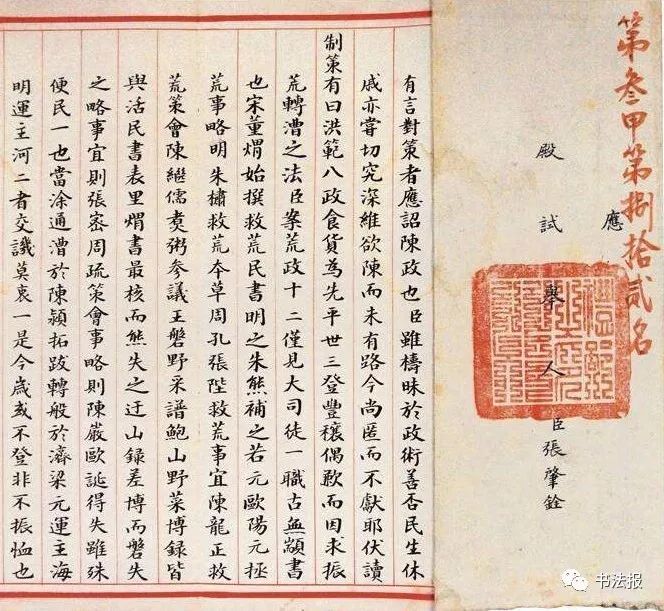 第叁甲第捌拾貳名
應
殿試舉人臣張肇銓
有言對策者應詔陳政也臣雖檮昧於政術善否民生休
戚亦嘗切究深維欲陳而未有路今尚匿而不獻耶伏讀
制策有曰洪範八政食貨為先平世三登豐穰偶歉而因求振
荒轉漕之法臣案荒政十二僅見大司徒一職古無顓書
也宋董煟始撰救荒民書明之朱熊補之若元歐陽元拯
荒事略明朱橚救荒本草周孔張陛救荒事宜陳龍正救
荒策會陳繼儒煑粥參議王磐野采譜鮑山野菜博録皆
與活民書表里煟書最核而熊失之迂山録差博而磐失
之略事宜則張密周疏策會事略則陳嚴歐誕得失雖殊
便民一也當涂通漕於陳潁拓跋轉般於濟梁元運主海
明運主河二者交譏莫衷一是今歲或不登非不振恤也
書法报